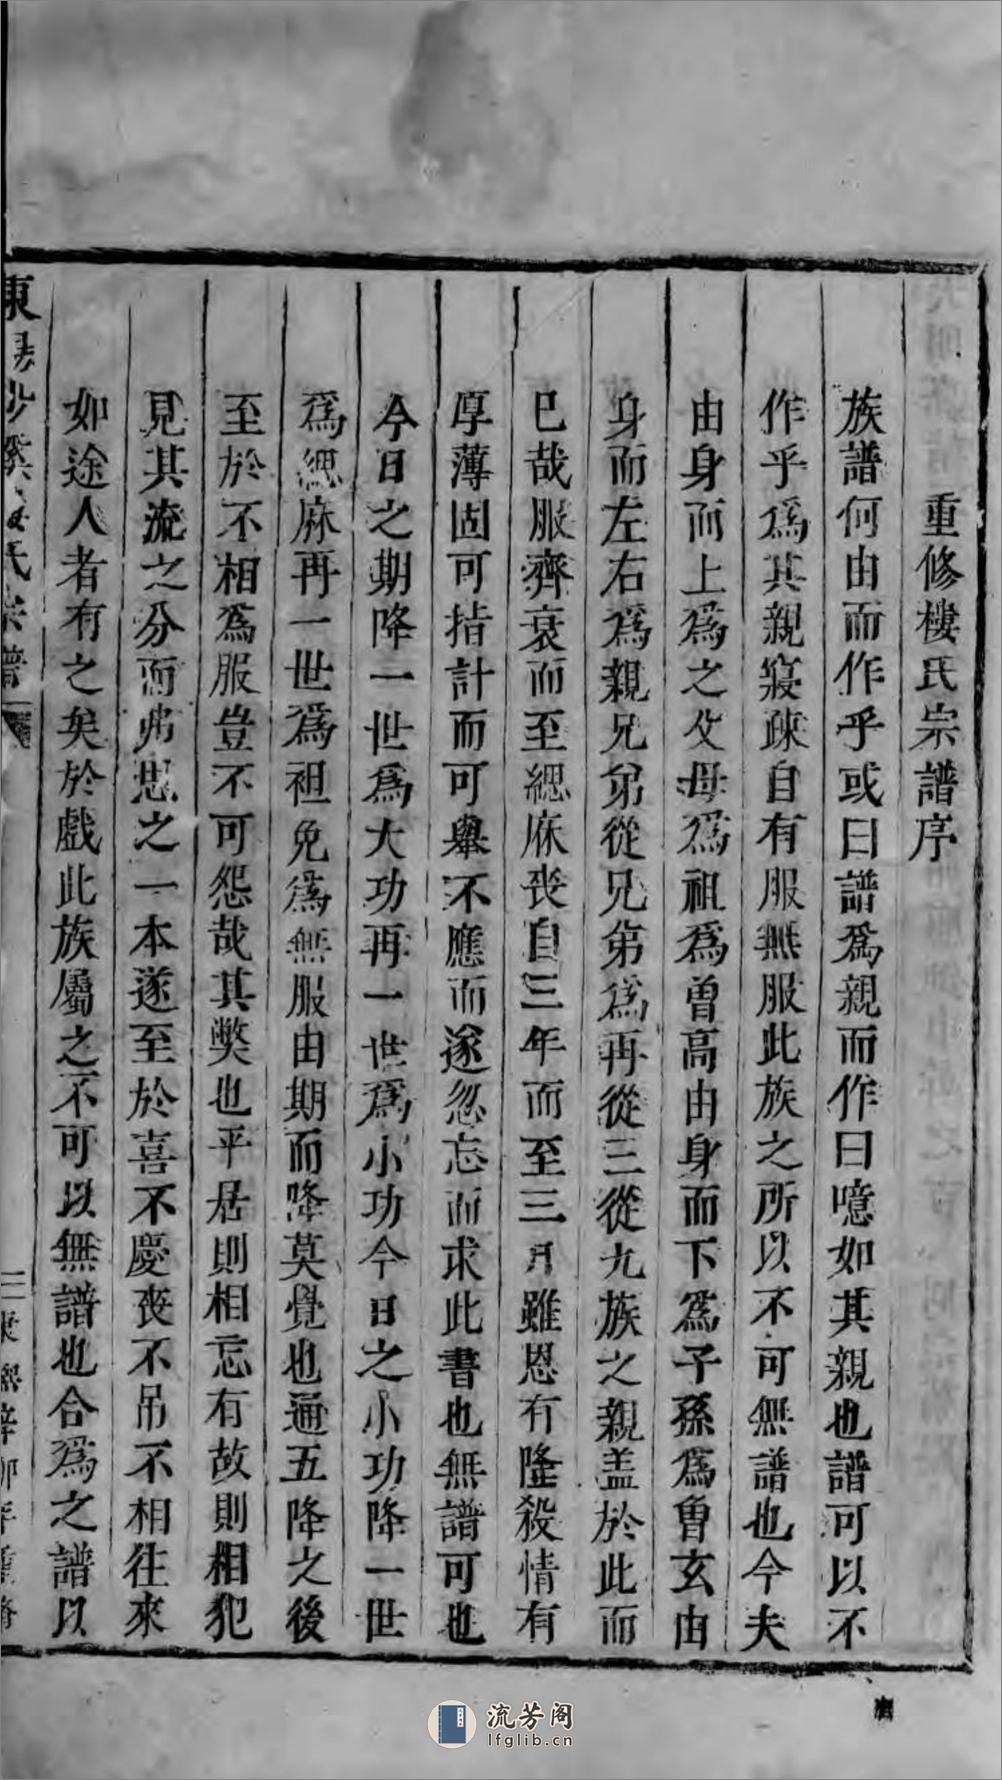 重修樓氏宗譜序
族譜何由而作乎或曰譜爲親而作曰噫如其親也譜可以不
作乎爲其親寖疎自有服無服此族之所以不可無譜也今夫
由身而上爲之父母爲祖爲曾高由身而下爲子孫爲曾玄由
身而左右爲親兄弟從兄弟爲再從三從九族之親盖於此而
已哉服齊衰而至緦麻喪自三年而至三月雖恩有隆殺情有
厚薄固可指計而可舉不應而遂忽忘而求此書也無譜可也
今日之期降一世爲大功再一世爲小功今日之小功降一世
爲緦麻再一世爲袒免爲無服由期而降莫覺也通五降之後
至於不相爲服豈不可怨哉其獘也平居則相忘有故則相犯
見其流之分而弗思之一本遂至於喜不慶喪不吊不相往來
如途人者有之矣於戲此族屬之不可以無譜也合爲之譜以
東陽氏宗譜
流芳阁
lfglib.cn